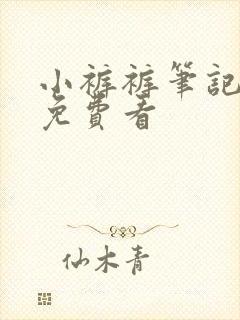 小裤裤筆記
免費看
仙木青